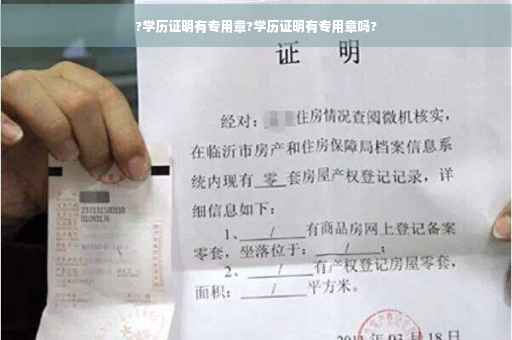 ?学历证明有专用章?学历证明有专用章吗?
证 明
经对: 住房情况查阅微机核实,
在临沂市房产和住房保障局档案信息系
统内现有 零 套房屋产权登记记录,详
细信息如下:
1、 / 有商品房网上登记备案
零套,坐落位于: / ;
2、 / 有产权登记房屋零套,
面积: / 平方米。
年 03 月 18 日